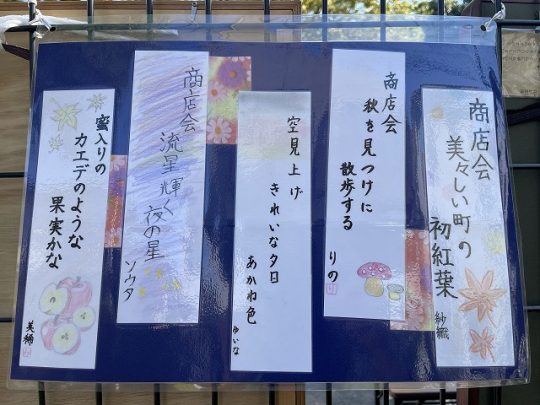 商店会
美々しい町の
初紅葉
紗織
商店会
秋を見つけに
散歩する
りの
空見上げ
きれいな夕日
あかね色
ゆいな
商店会
流星輝く
夜の星
ソウタ
蜜入りの
カエデのような
果実かな